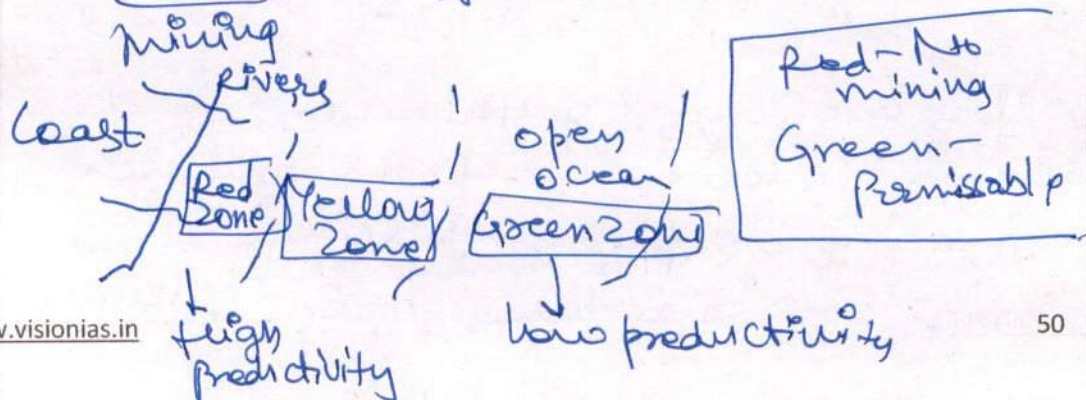 Mining
Rivers
Coast
Red
Zone
Yellow
Zone
open
ocean
Green Zone
Red - No
mining
Green -
Permissable
High
Productivity
low productivity
w.visionias.in
50